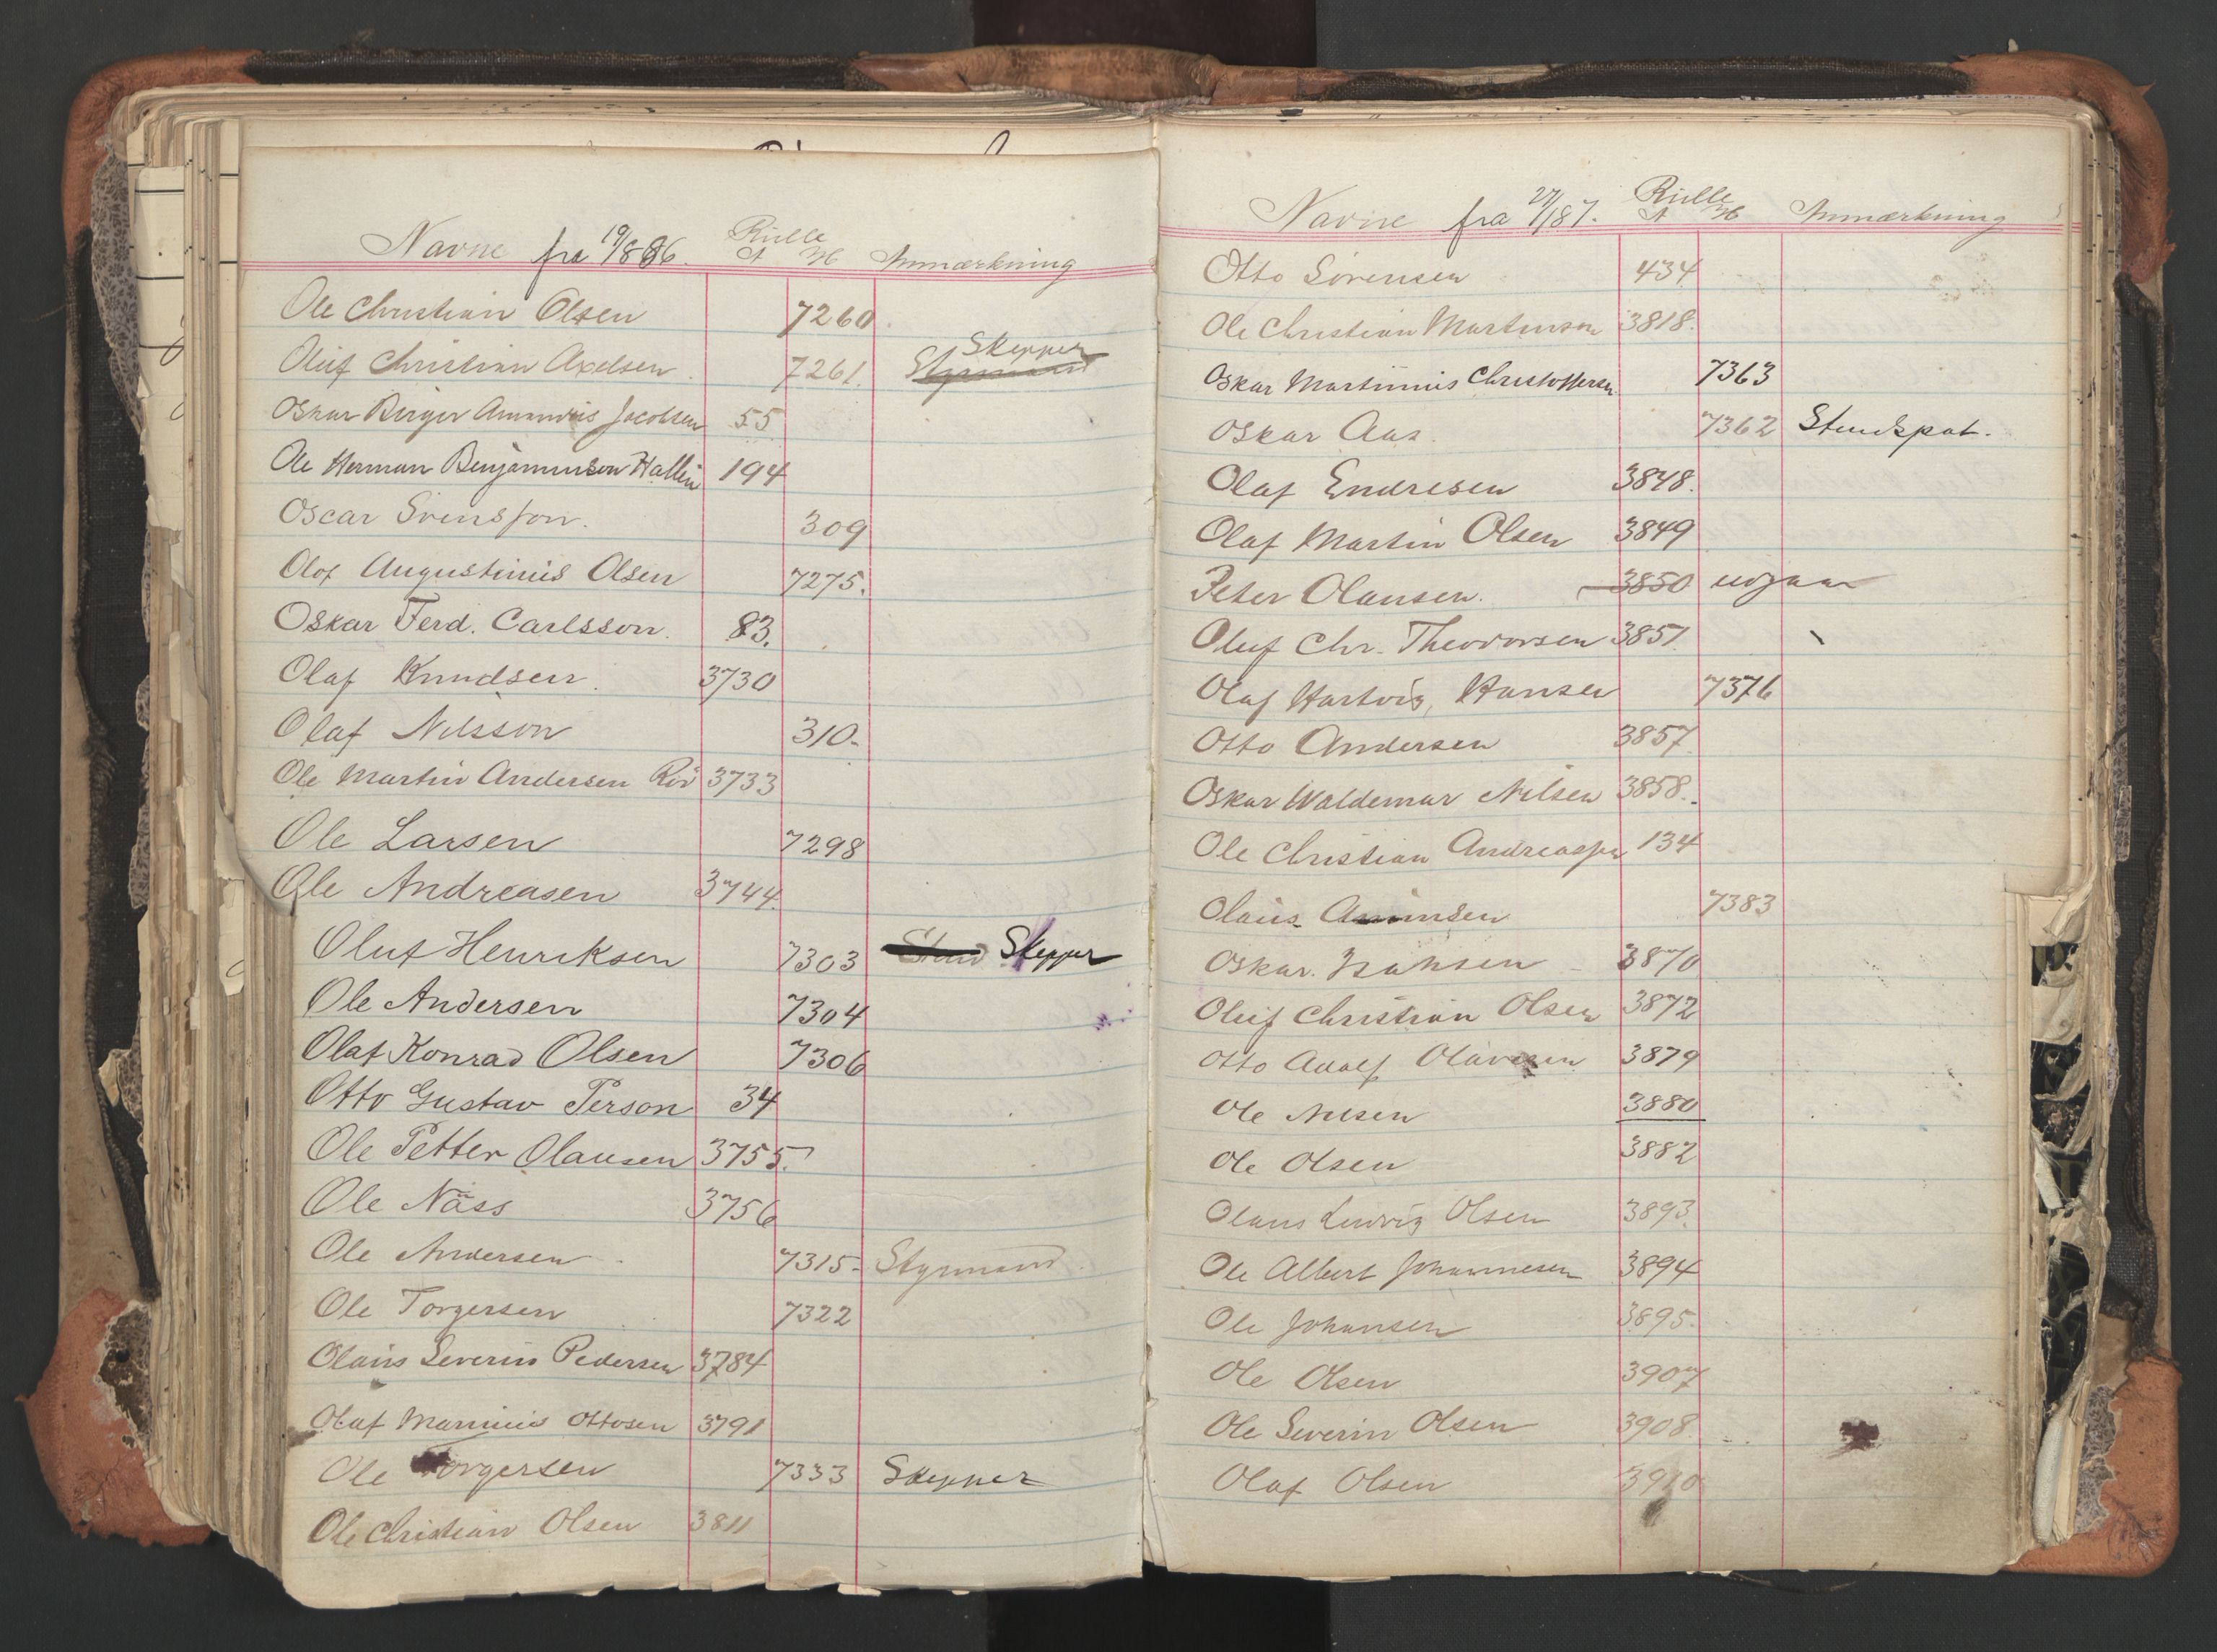 Navne fra 19/8 86. Rulle A H Anmærkning
Ole Christian Olsen 7260
Oluf Christian Axelsen 7261. Styrmand Skepper
Oskar Birger Amandus Jacobsen 55
Ole Herman Benjaminsen Hallin 194
Oscar Svensson. 309
Olof Augustinius Olsen 7275.
Oskar Ferd. Carlsson. 83.
Olaf Knudsen. 3730
Olaf Nilsson 310.
Ole Martin Andersen Röd 3733
Ole Larsen 7298
Ole Andreasen 3744.
Oluf Henriksen 7303 Skepper
Ole Andersen 7304
Olaf Konrad Olsen 7306
Otto Gustav Person 34
Ole Petter Olausen 3755.
Ole Näss 3756
Ole Andersen 7315- Styrmand
Ole Torgersen 7322
Olaus Severin Pedersen 3784
Olaf Marinius Ottosen 3791
Ole Torgersen 7333 Skepper
Ole Christian Olsen 3811
Navne fra 87. Rulle A H Anmærkning
Otto Sörensen 434
Ole Christian Martinsen 3818.
Oskar Martinius Christoffersen 7363
Oskar Aas. 7362 Stuckpat.
Olaf Endresen 3848.
Olaf Martin Olsen 3849
Peter Olausen. 3850 udgaar
Oluf Chr. Theodorsen 3851.
Olaf Hartvig Hansen 7376
Otto Andersen 3857
Oskar Waldemar Nilsen 3858.
Ole Christian Andreassen 134
Olaus 7383
Oskar. Isaksen 3870
Oluf Christian Olsen 3872
Otto Adolf Olavesen 3879
Ole Nilsen 3880
Ole Olsen 3882
Olaus Ludvig Olsen 3893.
Ole Albert Johannesen 3894
Ole Johansen 3895.
Ole Olsen 3907
Ole Severin Olsen 3908
Olaf Olsen 3910